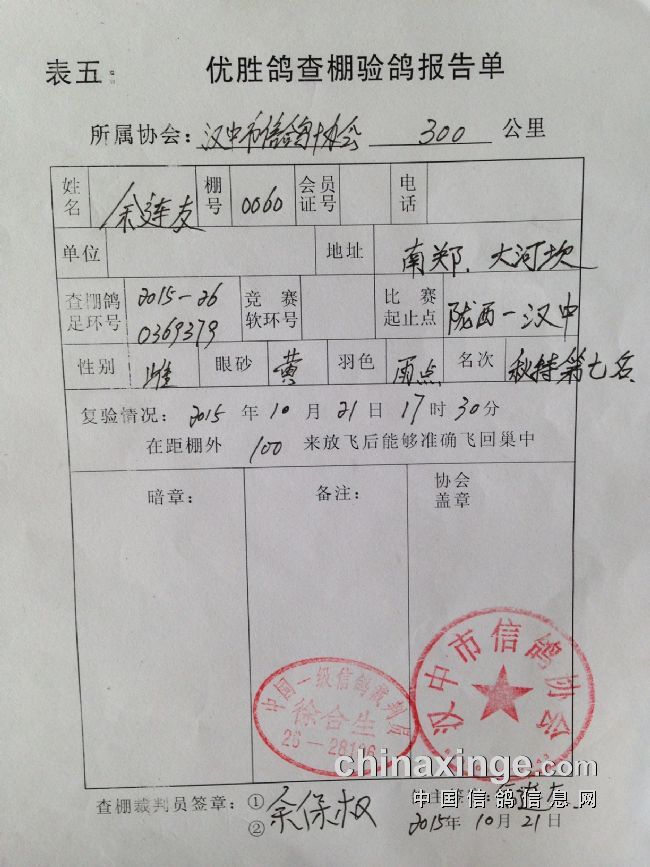 表五：
优胜鸽查棚验鸽报告单
所属协会：汉中市信鸽协会 300 公里
姓名 余连友 棚号 0060 会员证号 电话
单位 地址 南郑．大河坎
查棚鸽足环号 2015-26 0369379 竞赛软环号 比赛起止点 陇西-汉中
性别 雌 眼砂 黄 羽色 雨点 名次 秋特第七名
复验情况：2015 年 10 月 21 日 17 时 30 分
在距棚外 100 来放飞后能够准确飞回巢中
暗章： 备注： 协会盖章
汉中市信鸽协会
中国一级信鸽裁判员
徐合生
chinaxinge.com
中国信鸽信息网
查棚裁判员签章：① 余保权
②
2015年 10月 21日